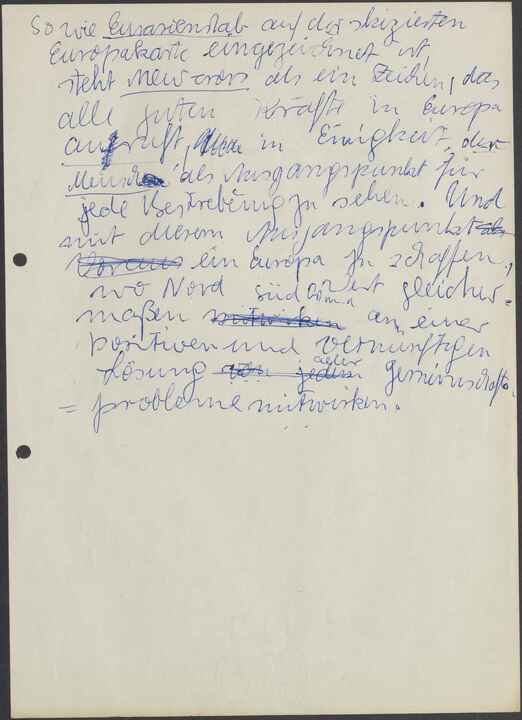 So wie Eurasienstab auf der skizierten
Europakarte eingezeichnet ist,
steht als ein Zeichen, das
alle guten Kräfte in Europa
aufruft, in Einigkeit, der
Mensch als Ausgangspunkt für
jede Bestrebung zu sehen. Und
mit diesem Ausgangspunkt
ein Europa zu schaffen,
wo Nord süd West gleicher-
maßen mitwirken an einer
positiven und vernünftigen
Lösung von jeden aller Gemeinschafts
= probleme mitwirken.